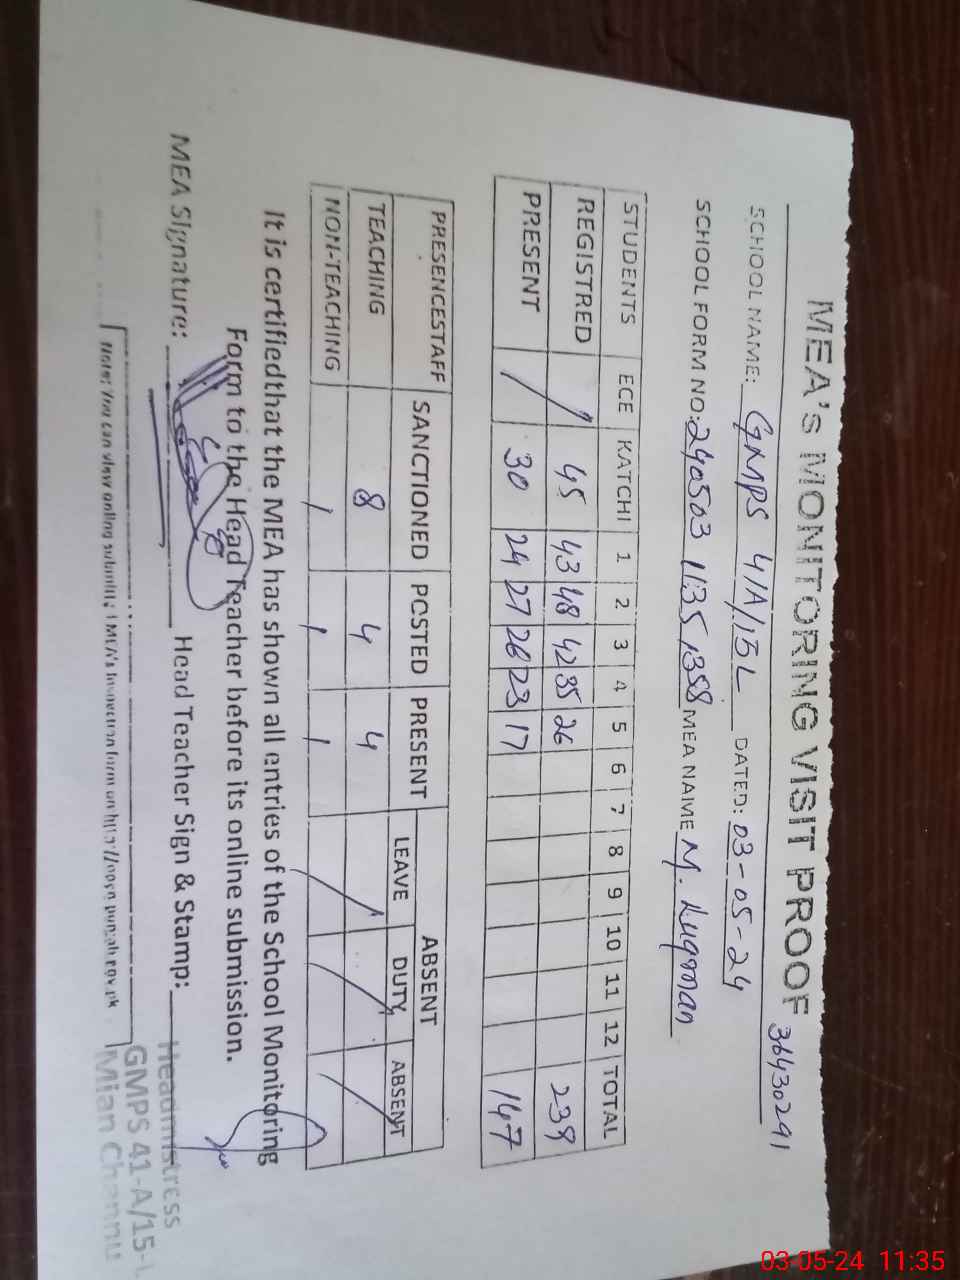 MEA's MONITORING VISIT PROOF
36430291
SCHOOL NAME: GMPS 41A/15L DATED: 03-05-24
SCHOOL FORM NO: 240503 1135 1358 MEA NAME M. Luqman
STUDENTS ECE KATCHI 1 2 3 4 5 6 7 8 9 10 11 12 TOTAL
REGISTRED / 45 43 48 42 35 26 239
PRESENT / 30 24 27 26 23 17 147
PRESENCESTAFF SANCTIONED POSTED PRESENT ABSENT
LEAVE DUTY ABSENT
TEACHING 8 4 4 / / /
NON-TEACHING 1 1 1 / / /
It is certifiedthat the MEA has shown all entries of the School Monitoring
Form to the Head Teacher before its online submission.
MEA Signature: Head Teacher Sign & Stamp:
Headmistress
GMPS 41-A/15-L
Mian Channu
Note: You can view online submitted MEA's Inspection form on http://open.punjab.gov.pk
03-05-24 11:35